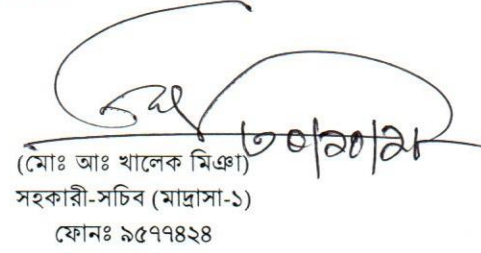 ৩০|১০|১৮
(মোঃ আঃ খালেক মিঞা)
সহকারী-সচিব (মাদ্রাসা-১)
ফোনঃ ৯৫৭৭৪২৪